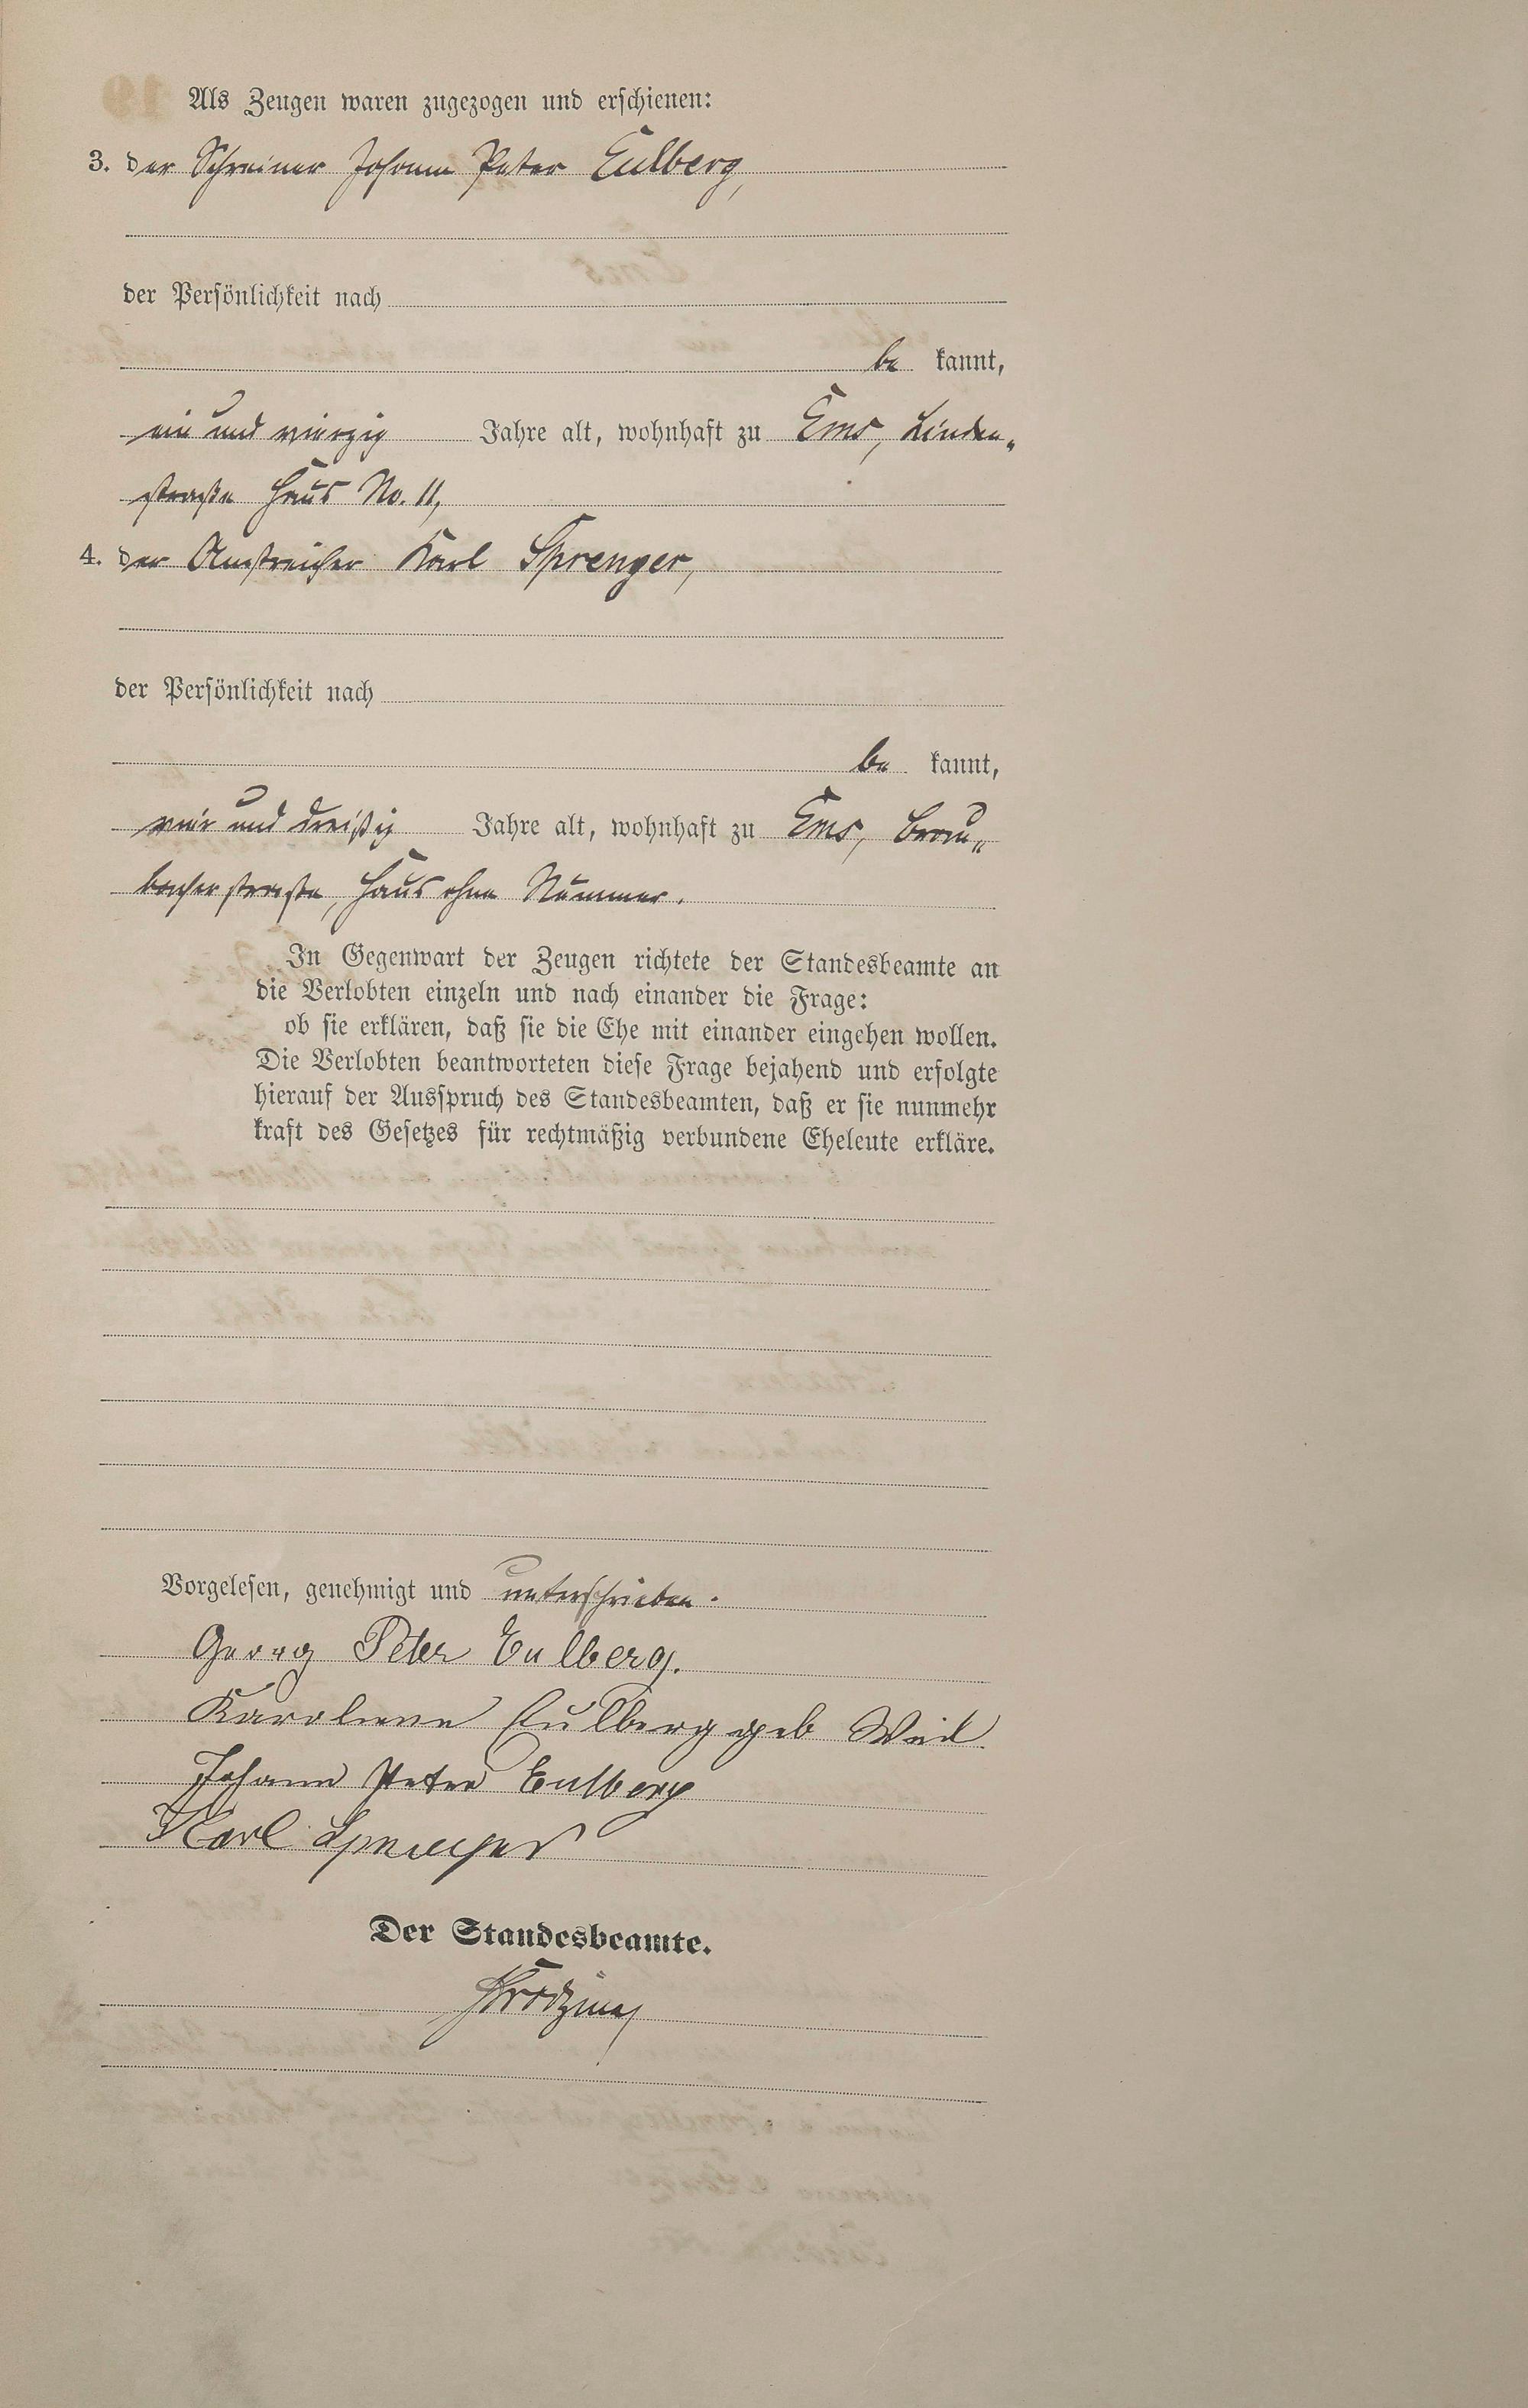 Als Zeugen waren zugezogen und erschienen:
3. der Schreiner Johann Peter Eulberg,
der Persönlichkeit nach
be kannt,
ein und vierzig Jahre alt, wohnhaft zu Ems, Linden„
straße Haus No. 11,
4. der Anstreicher Karl Sprenger,
der Persönlichkeit nach
be kannt,
vier und dreißig Jahre alt, wohnhaft zu Ems, Brau„
bacherstraße, Haus ohne Nummer.
In Gegenwart der Zeugen richtete der Standesbeamte an
die Verlobten einzeln und nach einander die Frage:
ob sie erklären, daß sie die Ehe mit einander eingehen wollen.
Die Verlobten beantworteten diese Frage bejahend und erfolgte
hierauf der Ausspruch des Standesbeamten, daß er sie nunmehr
kraft des Gesetzes für rechtmäßig verbundene Eheleute erkläre.
Vorgelesen, genehmigt und unterschrieben.
Georg Peter Eulberg.
Karoliene Eulberg geb
Johann Peter Eulberg
Karl Sprenger
Der Standesbeamte.